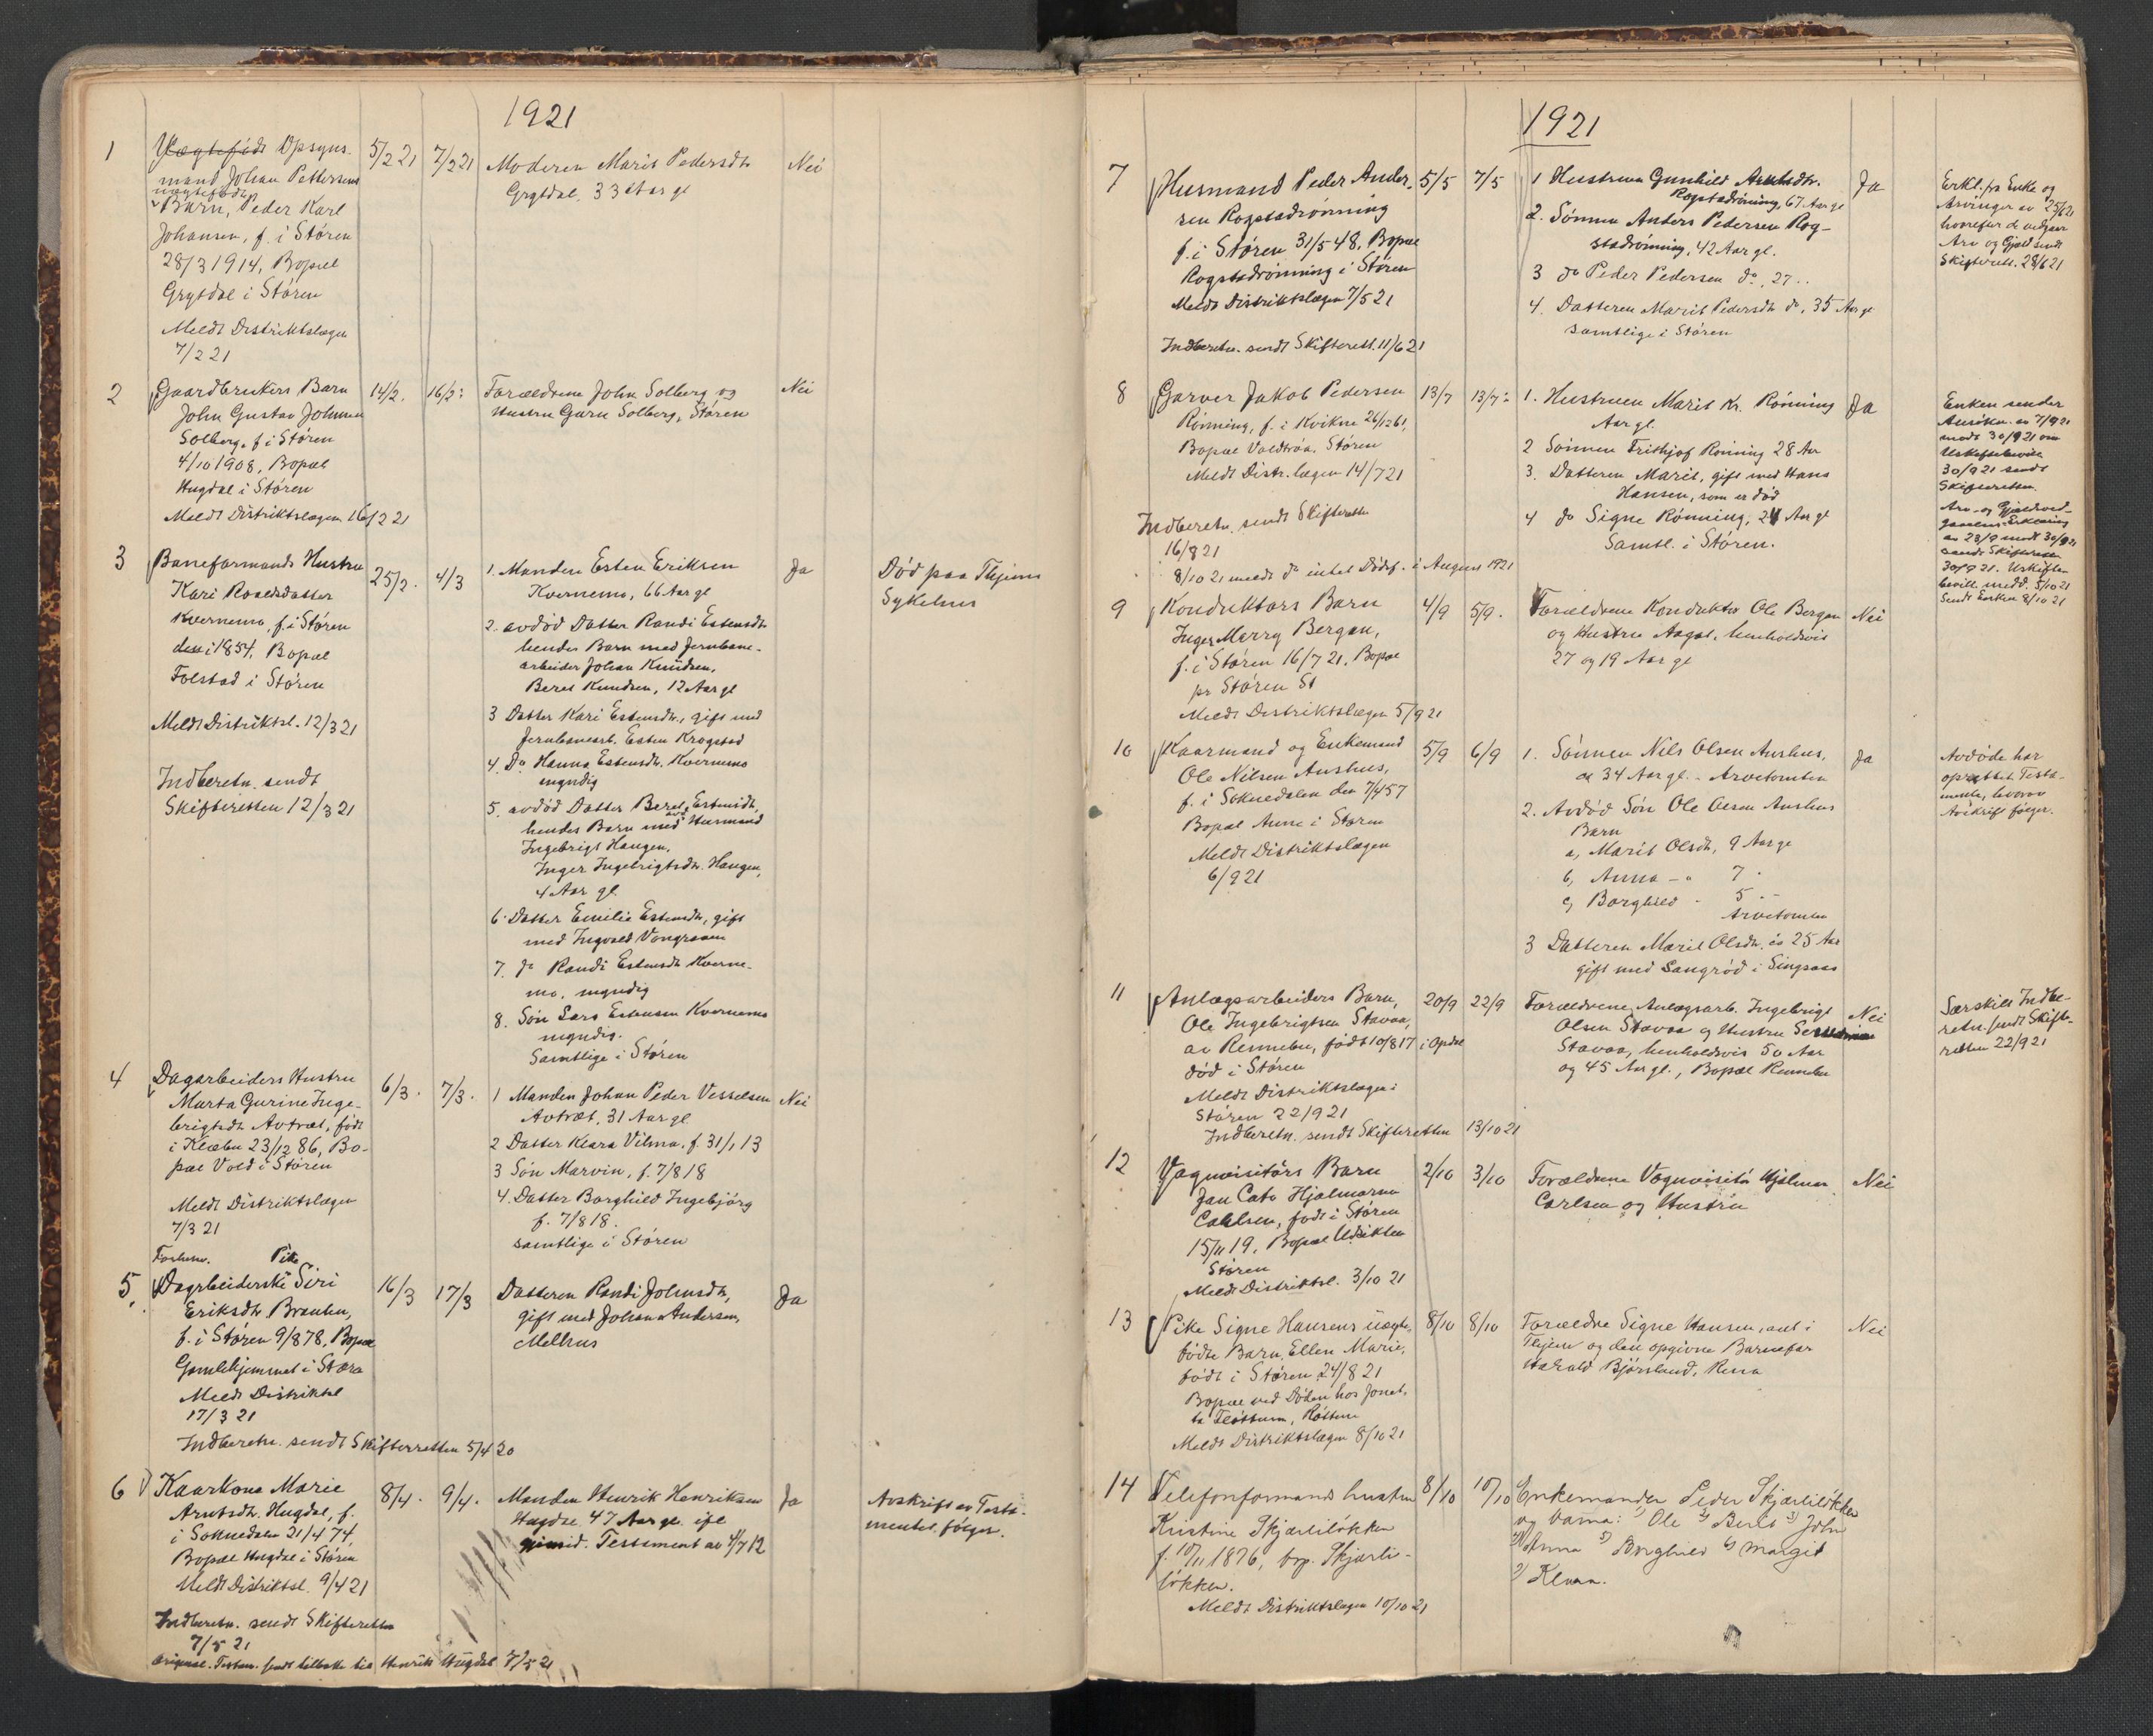 1921
1
Uægtefødt Opsyns-
mand Johan Pettersens
uægtefødte
Barn, Peder Karl
Johansen, f. i Støren
28/3 1914, Bopæl
Grytdal i Støren
Meldt Distriktslægen
7/2 21
5/2 21
7/2 21
Moderen Marit Pedersdtr
Grytdal, 33 Aar gl
Nei
2
Gaardbrukers Barn
John Gustav Johnsen
Solberg, f i Støren
4/10 1908, Bopæl
Hugdal i Støren
Meldt Distriktslægen 16/2 21
14/2.
16/2.
Forældrene John Solberg og
Hustru Guru Solberg, Støren
Nei
3
Baneformands Hustru
Kari Roaldsdatter
Kvernmo, f. i Støren
i 1854, Bopæl
Folstad i Støren
Meldt Distriktsl. 12/3 21
Indberetn. sendt
Skifteretten 12/3 21
25/2.
4/3
1. Manden Esten Eriksen
Kvernmo, 66 Aar gl
2. avdød Datter Randi Estensdtr
hendes Barn med Jernbane-
arbeider Johan Knudsen,
Beret Knudsen, 12 Aar gl
3 Datter Kari Estensdtr, gift med
Jernbanearb. Esten Krogstad
4. Do Hanna Estensdtr. Kvernmo
myndig
5. avdød Datter Beret Estensdtr,
hendes Barn med Husmand
Ingebrigt Haugen,
Inger Ingebrigtsdtr. Haugen,
4 Aar gl.
6. Datter Emilie Estensdtr, gift
med Ingvald Vongraven
7. do Randi Estensdtr Kverne-
mo, myndig
8. Søn Lars Estensen Kvernmo
myndig.
Samtlige i Støren
Ja
Død paa Thjems
Sykehus
4
Dagarbeiders Hustru
Marta Gurine Inge-
brigtsdtr Avtræt, født
i Klæbu 23/12 86, Bo-
pæl Vold i Støren
Meldt Distriktslægen
7/3 21
6/3.
7/3.
1 Manden Johan Peder Vesselsen
Avtræt, 31 Aar gl
2 Datter Klara Vilma, f. 31/1 13
3 Søn Marvin, f. 7/8 18
4. Datter Borghild Ingebjørg
f. 7/8 18.
samtlige i Støren
Nei
5.
Forhenv. Pike
Dagarbeiderske Siri
Eriksdtr Brauten,
f. i Støren 9/8 78, Bopæl
Gamlehjemmet i Støren
Meldt Distriktsl
17/3 21
Indberetn. sendt Skifteretten 5/4 20
16/3
17/3
Datteren Randi Johnsdtr,
gift med Johan Andersen,
Melhus
Ja
6
Kaarkone Marie
Arntsdtr. Hugdal, f.
i Soknedalen 21/4 74,
Bopæl Hugdal i Støren
Meldt Distriktsl. 9/4 21
Indberetn. sendt Skifteretten
7/5 21
Original. Testam. sendt tilbake til Henrik Hugdal 7/5 21
8/4.
9/4.
Manden Henrik Henriksen
Hugdal 47 Aar gl. ifl
gjensid. Testament av 4/7 12
Ja
Avskrift av Testa-
mentet følger.
1921
7
Husmand Peder Ander-
sen Rogstadrønning
f. i Støren 31/5 48, Bopæl
Rogstadrønning i Støren
Meldt Distriktslægen 7/5 21
Indberetn. sendt Skifterett. 11/6 21
5/5
7/5
1 Hustruen Gunhild Arntsdtr.
Rogstadrønning, 67 Aar gl
2. Sønnen Anders Pedersen Rog-
stadrønning, 42 Aar gl.
3 do Peder Pedersen do, 27 ..
4. Datteren Marit Pedersdtr do, 35 Aar gl
samtlige i Støren
Ja
Erkl. fra Enke og
Arvinger av 25/6 21
hvorefter de vedgaar
Arv og Gjæld sendt
Skifterett. 28/6 21
8
Garver Jakob Pedersen
Rønning, f. i Kvikne 26/12 61,
Bopæl Voldtrøa, Støren
Meldt Distr. lægen 14/7 21
Indberetn. sendt Skifteretten
16/8 21
8/10 21 meldt do intet Dødsf. i August 1921
13/7
13/7.
1. Hustruen Marit Kr. Rønning
Aar gl.
2 Sønnen Fridtjof Rønning 28 Aar
3. Datteren Marit, gift med Hans
Hansen, som er død
4 do Signe Rønning, 21 Aar gl
Samtl. i Støren.
Ja
Enken sender
Ansøkn. av 7/9 21
modt 30/9 21 om
Uskiftebevill.
30/9 21 sendt
Skifteretten.
Arv- og Gjældsved-
gaaelses Erklæring
av 23/9 modt 30/9 21
sendt Skifteretten
30/9 21. Uskifte-
bevill. medd. 5/10 21
Sendt Enken 8/10 21
9
Konduktørs Barn
Inger Marry Bergan,
f. i Støren 16/7 21, Bopæl
pr Støren St
Meldt Distriktslægen 5/9 21
4/9
5/9.
Forældrene Konduktør Ole Bergan
og Hustru Aagot, henholdsvis
27 og 19 Aar gl
Nei
10
Kaarmand og Enkemand
Ole Nilsen Aushus,
f. i Soknedalen den 7/4 57
Bopæl Aune i Støren
Meldt Distriktslægen
6/9 21
5/9
6/9
1. Sønnen Nils Olsen Aushus,
34 Aar gl. - Arvetomten
2. Avdød Søn Ole Olsen Aushus
Barn
a, Marit Olsdtr, 9 Aar gl
b, Anna - " 7 "
c, Borghild - 5 -
Arvetomten
3 Datteren Marit Olsdtr. 25 Aar
gift med Langrød i Singsaas
Ja
Avdøde har
oprettet Testa-
mente, hvorav
Avskrift følger.
11
Anlægsarbeiders Barn,
Ole Ingebrigtsen Stavaa,
av Rennebu, født 10/8 17 i Opdal
død i Støren
Meldt Distriktslægen i
Støren 22/9 21
Indberetn. sendt Skifteretten 13/10 21
20/9
22/9
Forældrene, Anlægsarb. Ingebrigt
Olsen Stavaa og Hustru
Stavaa, henholdsvis 50 Aar
og 45 Aar gl., Bopæl Rennebu
Nei
Særskilt Indbe-
retn. sendt Skifte-
retten 22/9 21
12
Vognvisitørs Barn
Jan Cato Hjalmarsen
Carlsen, født i Støren
15/11 19, Bopæl
Støren
Meldt Distriktsl. 3/10 21
2/10
3/10
Forældrene Vognvisitør Hjalmar
Carlsen og Hustru
Nei
13
Pike Signe Hansens uægte-
fødte Barn, Ellen Marie,
født i Støren 24/8 21
Bopæl ved Døden hos Jonet-
ta Fløttum, Røttum
Meldt Distriktslægen 8/10 21
8/10
8/10
Forældre Signe Hansen, ant i
Thjem og den opgivne Barnefar
Harald Bjørnland, Rena
Nei
14
Telefonformands hustru
Kristine Skjærliløkken
f. 10/11 1876, bop. Skjærli-
løkken.
Meldt Distriktslægen 10/10 21
8/10
10/10
Enkemanden Peder Skjærliløkken
og barna: 1) Ole 2) Berit 3) John
4) Anna 5) Borghild 6) Margit
7) Klara.